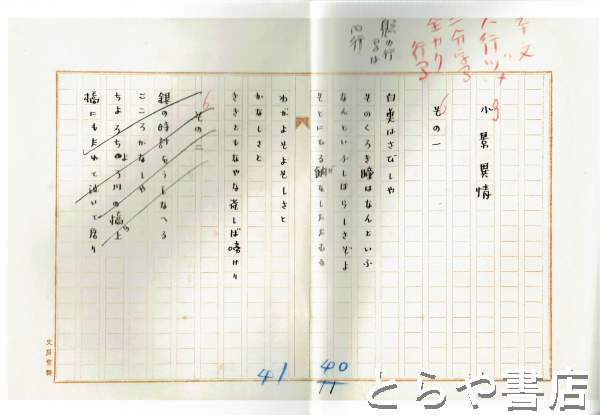 本文
小景異情
その一
白魚はさびしや
そのくろき瞳はなんといふ
なんといふしほらしさぞよ
そとにひる餉をしたたむる
わがよそよそしさと
かなしさと
ききともなやな雀しば啼けり
その二
銀の時計をうしなへる
こころかなしや
ちよろちよろ川の橋の上
橋にもたれて泣いて居り
文房堂製
41
40
とらや書店